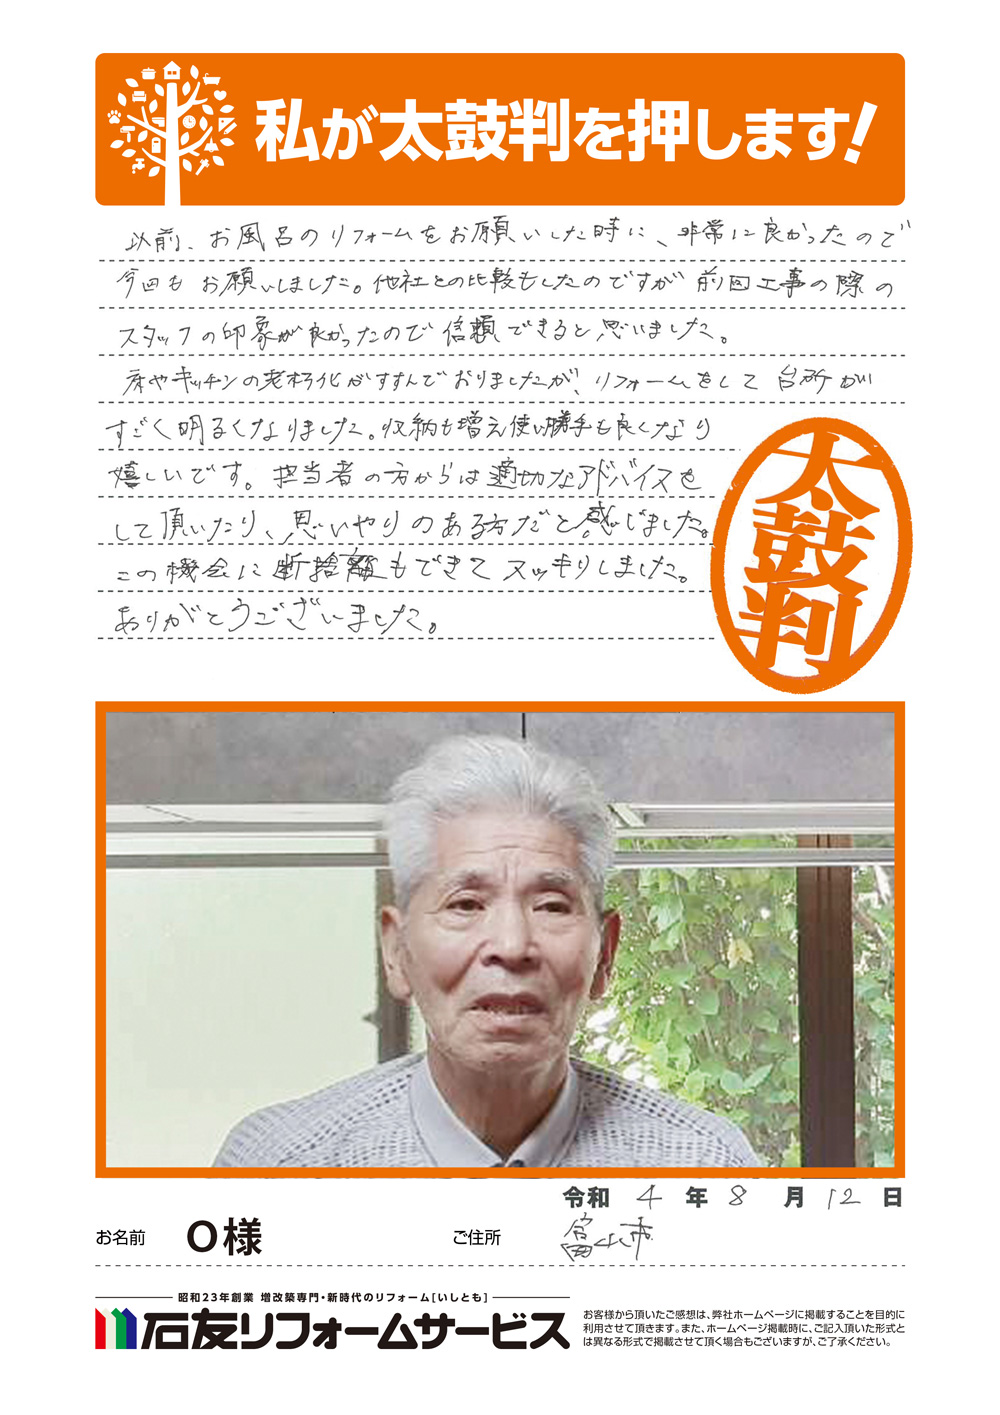 私が太鼓判を押します!
以前、お風呂のリフォームをお願いした時に、非常に良かったので
今回もお願いしました。他社との比較もしたのですが前回工事の際の
スタッフの印象が良かったので信頼できると思いました。
床やキッチンの老朽化がすすんでおりましたが、リフォームをして台所が
すごく明るくなりました。収納も増え使い勝手も良くなり
嬉しいです。担当者の方からは適切なアドバイスを
して頂いたり、思いやりのある方だと感じました。
この機会に断捨離もできてスッキリしました。
ありがとうございました。
太鼓判
令和 4 年 8 月 12 日
お名前 O様 ご住所 富山市
昭和23年創業 増改築専門・新時代のリフォーム[いしとも]
石友リフォームサービス
お客様から頂いたご感想は、弊社ホームページに掲載することを目的に
利用させて頂きます。また、ホームページ掲載時に、ご記入頂いた形式と
は異なる形式で掲載させて頂く場合もございますが、ご了承ください。